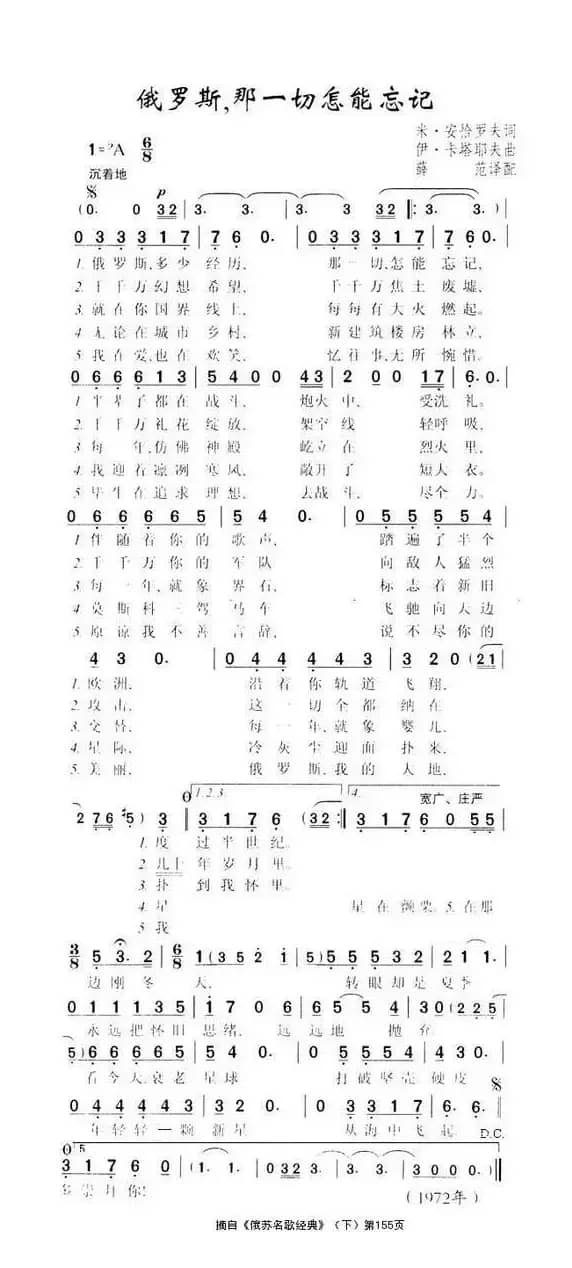 俄罗斯,那一切怎能忘记
米·安恰罗夫词
1=♭A 6/8
伊·卡塔耶夫曲
沉着地
薛 范译配
(0. 0 32 | 3. 3. | 3. 3 32 |: 3. 3. )
0 3 3 3 1 7 | 7 6 0. | 0 3 3 3 1 7 | 7 6 0. |
1.俄罗斯,多少 经历, 那一切,怎能 忘记,
2.千千万幻想 希望, 千千万焦土 废墟,
3.就在你国界 线上, 每每有大火 燃起。
4.无论在城市 乡村, 新建筑楼房 林立,
5.我在爱,也在 欢笑, 忆往事,无所 惋惜。
0 6 6 6 1 3 | 5 4 0 0 43 | 2 0 0 17 | 6. 0. |
1.半辈子都在 战斗, 炮火中, 受洗 礼。
2.千千万礼花 绽放, 架空线 轻呼 吸,
3.每一年,仿佛 神殿 屹立在 烈火 里,
4.我迎着凛冽 寒风, 敞开了 短大 衣。
5.毕生在追求 理想, 去战斗, 尽全 力。
0 6 6 6 6 5 | 5 4 0. | 0 5 5 5 5 4 |
1.伴随着你的 歌声, 踏遍了半个
2.千千万你的 军队 向敌人猛烈
3.每一年,就象 界石, 标志着新旧
4.莫斯科三驾 马车 飞驰向天边
5.原谅我不善 言辞, 说不尽你的
4 3 0. | 0 4 4 4 4 3 | 3 2 0 (21 |
1.欧洲, 沿着你轨道 飞翔,
2.攻击, 这一切全都 纳在
3.交替, 每一年,就象 婴儿,
4.星际, 冷灰尘迎面 扑来,
5.美丽, 俄罗斯,我的 大地,
1.2.3. 4. 宽广、庄严
1.度 过半世纪。
2.几十 年岁月里。
3.扑 到我怀里。
4.星 星在颤栗。5.在那
5.我
3/8 5 3. 2 | 6/8 1 (3 5 2 i | 5) 5 5 3 2 | 2 1 1. |
边刚冬 天, 转眼却是 夏季
0 1 1 1 3 5 | 1 7 0 6 | 6 5 5 4 | 3 0 (2 2 5 |
永远把怀旧 思绪, 远 远地 抛弃
5) 6 6 6 6 5 | 5 4 0. | 0 5 5 5 5 4 | 4 3 0. |
看今天,衰老 星球 打破坚壳 硬皮
0 4 4 4 4 3 | 3 2 0. | 0 3 3 1 7 | 6. 6. ||
年轻轻一颗 新星 从海中飞 起。 D.C.
5.
3 1 7 6 0 | (1. 1. | 0 3 2 3. | 3. 3. | 3 0 0 0) ||
(1972年)
摘自《俄苏名歌经典》（下）第155页